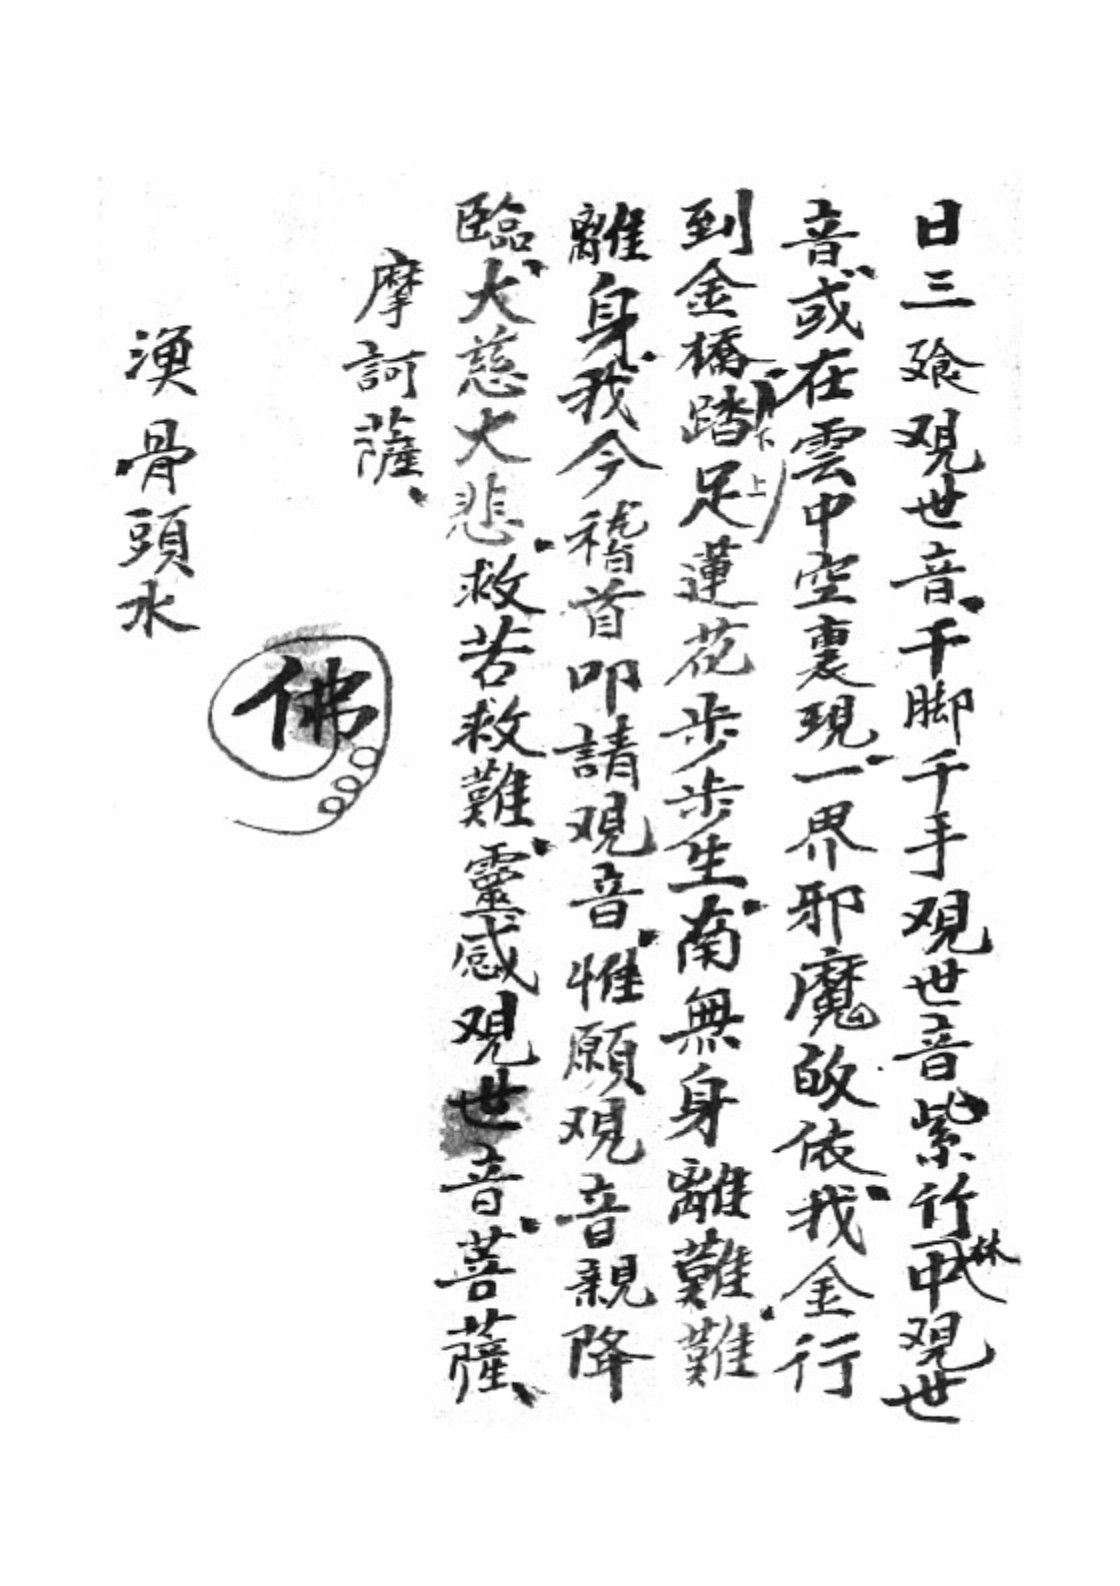 日三飱观世音千脚千手观世音紫竹林中观世
音或在雲中空裏現一界邪魔皈依我金行
到金橋踏下足上蓮花步步生南無身離難難
離身我今稽首叩請观音惟願观音親降
臨大慈大悲救苦救難靈感观世音菩薩
摩訶薩
佛
漁骨頭水